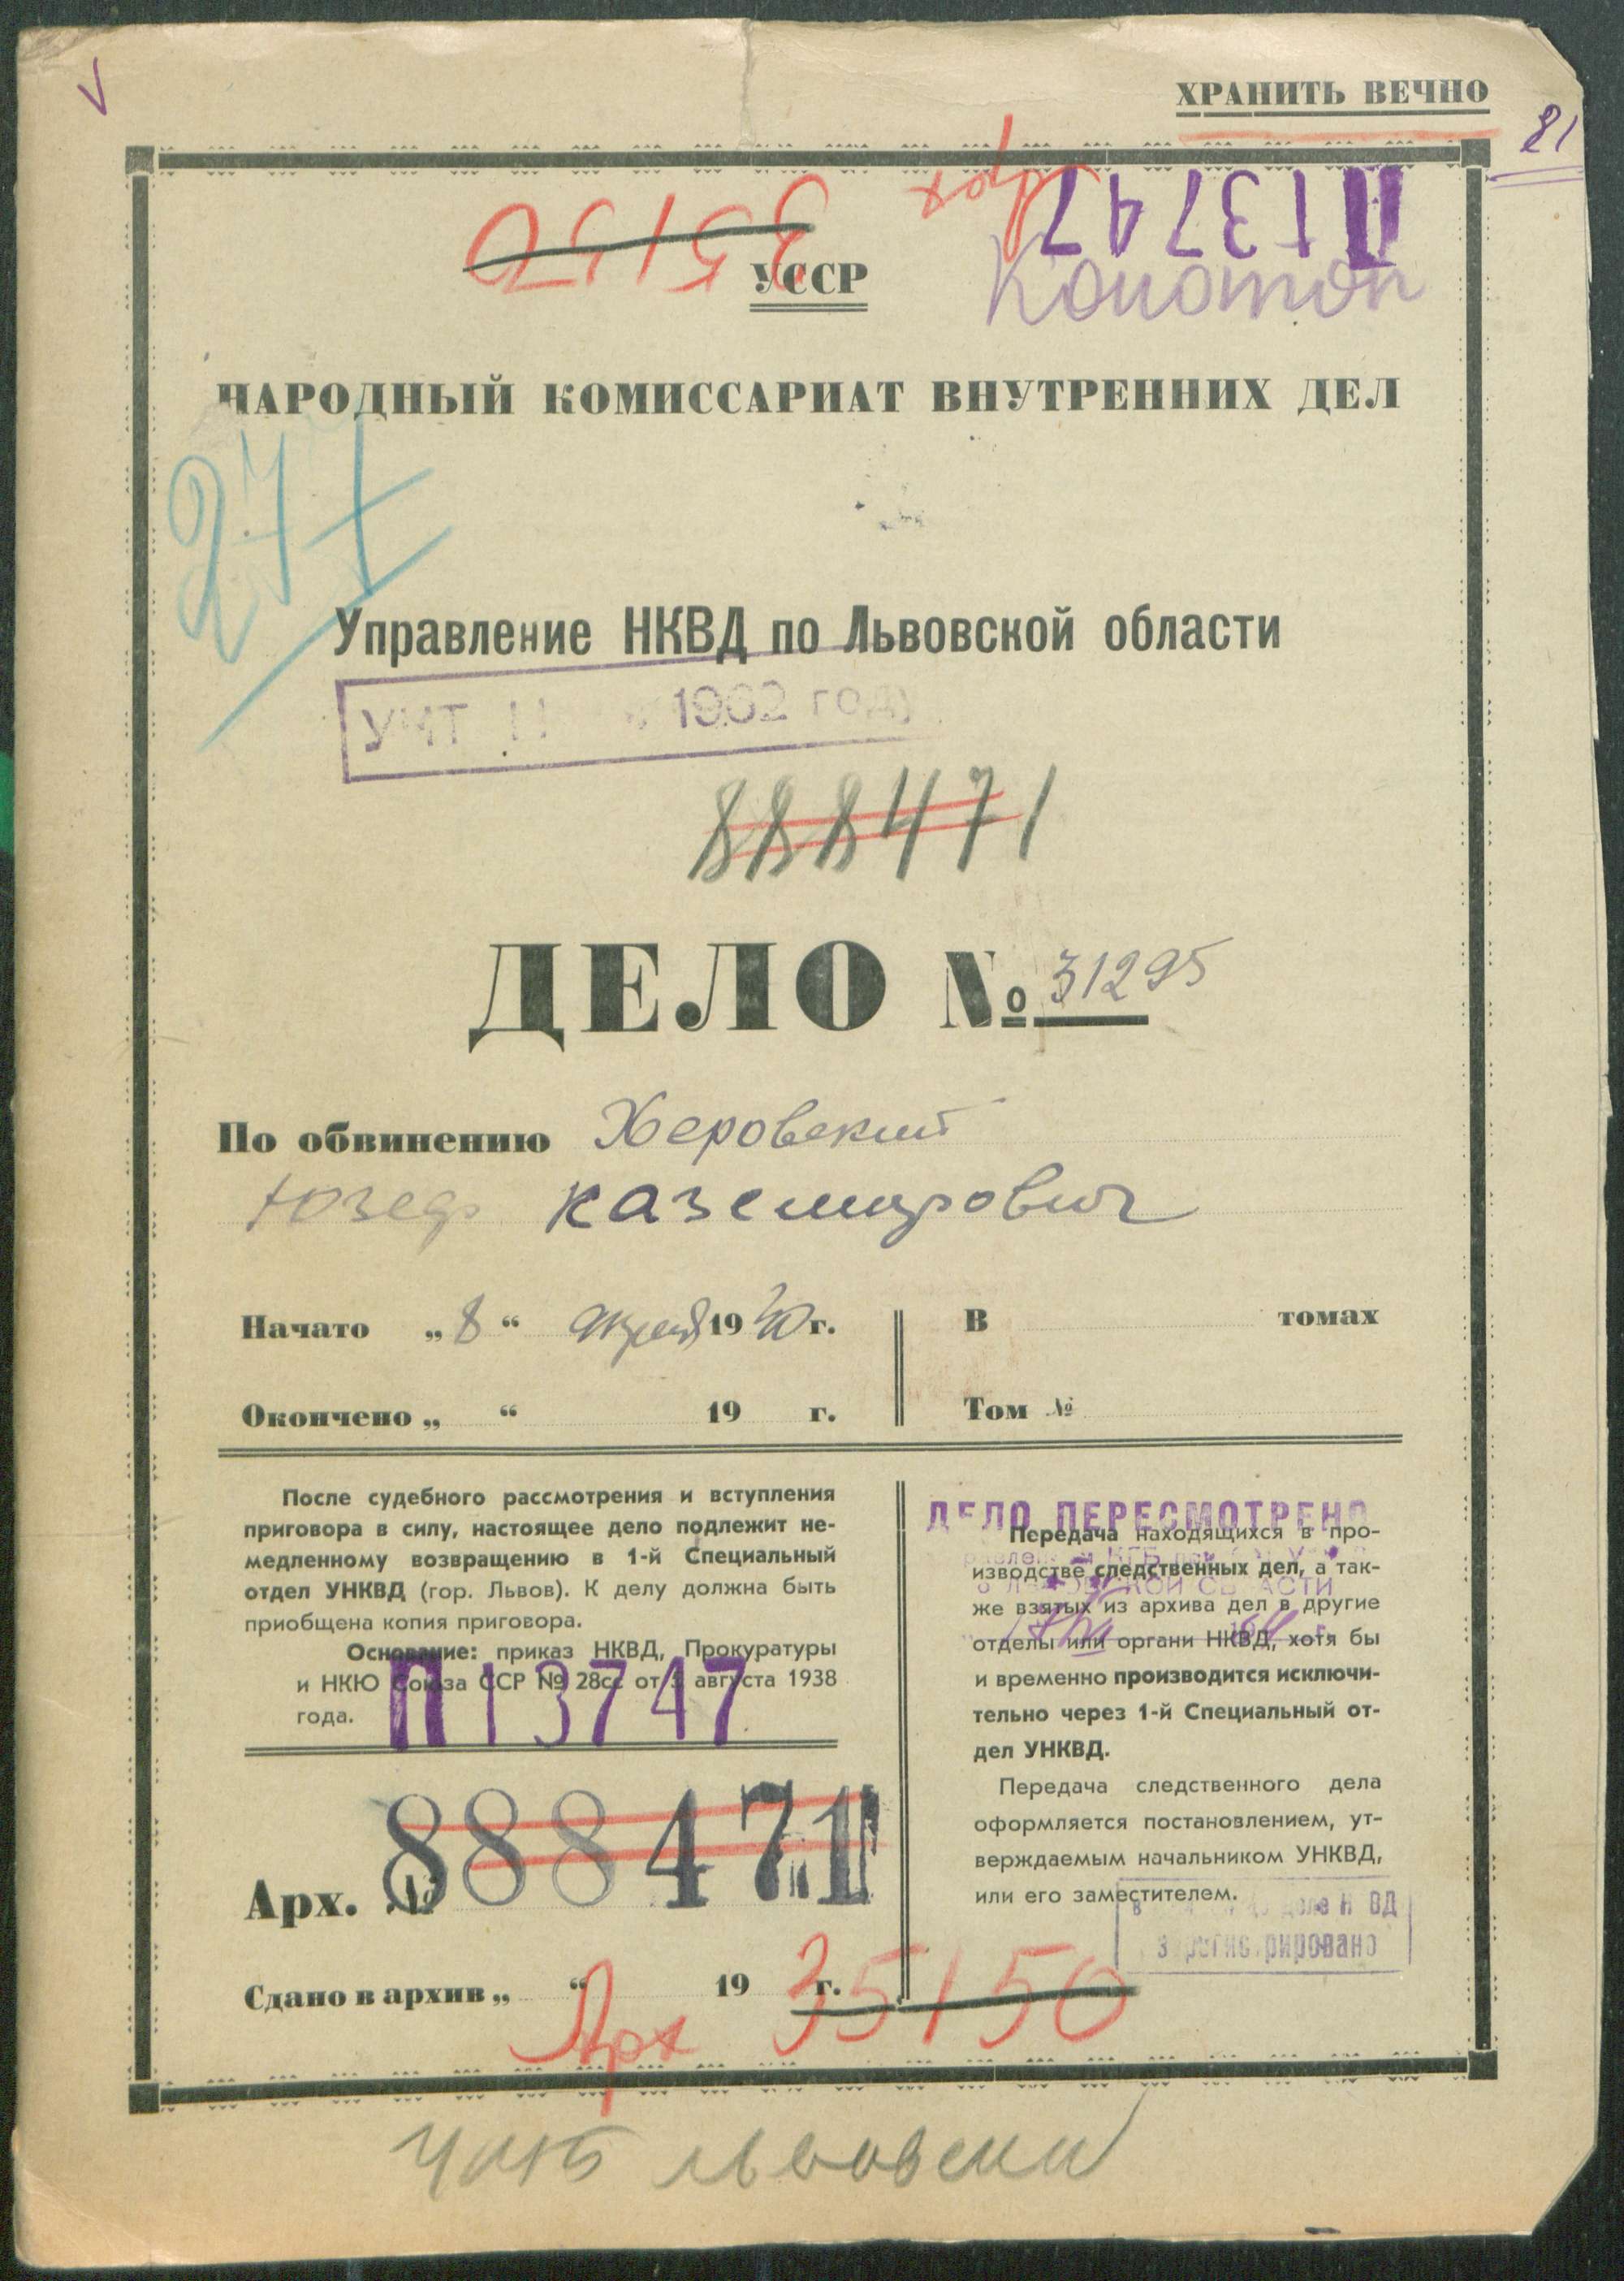 ХРАНИТЬ ВЕЧНО
81
Арх
35150
П13747
УССР
Конотоп
НАРОДНЫЙ КОМИССАРИАТ ВНУТРЕННИХ ДЕЛ
277
Управление НКВД по Львовской области
1962 году
888471
ДЕЛО № 31295
По обвинению Херовский
Юзеф Каземирович
Начато „8“ апреля 1940 г.
В томах
Окончено „ “ 19 г.
Том №
После судебного рассмотрения и вступления
приговора в силу, настоящее дело подлежит не-
медленному возвращению в 1-й Специальный
отдел УНКВД (гор. Львов). К делу должна быть
приобщена копия приговора.
Основание: приказ НКВД, Прокуратуры
и НКЮ Союза ССР № 28сс от 5 августа 1938
года.
П13747
ДЕЛО ПЕРЕСМОТРЕНО
Передача находящихся в про-
изводстве следственных дел, а так-
же взятых из архива дел в другие
отделы или органи НКВД, хотя бы
и временно производится исключи-
тельно через 1-й Специальный от-
дел УНКВД.
Передача следственного дела
оформляется постановлением, ут-
верждаемым начальником УНКВД,
или его заместителем.
зарегистрировано
Арх. № 888471
Сдано в архив „ “ 19 г.
Арх 35150